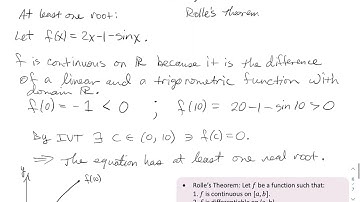 At least one root:
Rolle's theorem
Let f(x) = 2x-1-sinx.
f is continuous on ℝ because it is the difference
of a linear and a trigonometric function with
domain ℝ.
f(0) = -1 < 0 ; f(10) = 20-1-sin10 > 0
By IVT ∃ c ∈ (0, 10) ∋ f(c) = 0.
⇒ The equation has at least one real root.
y
f(10)
• Rolle's Theorem: Let f be a function such that:
1. f is continuous on [a, b].
2. f is differentiable on (a, b).